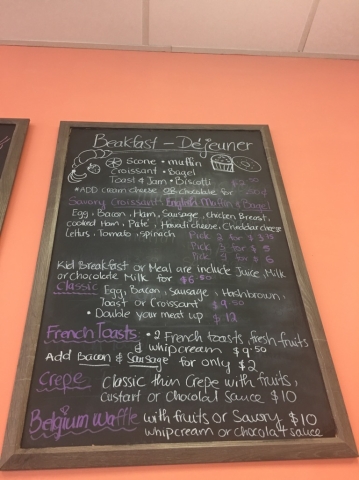 Breakfast - Déjeuner
Scone • muffin
Croissant • Bagel
Toast & Jam • Biscotti
*ADD cream cheese OR chocolate for
Savory Croissant, English Muffin & Bagel
Egg, Bacon, Ham, Sausage, chicken Breast,
cooked Ham, Paté, Havarti cheese, Cheddar cheese
Lettus, Tomato, spinach Pick 2 for $ 3.50
Pick 3 for $ 5
Pick 4 for $ 6
Kid Breakfast or Meal are include Juice, Milk
or chocolate Milk for $6.50
Classic Egg, Bacon, Sausage, Hashbrown,
Toast or Croissant $9.50
• Double your meat up $ 12
French Toasts • 2 French toasts, fresh-fruits
& whipcream $ 9.50
Add Bacon & Sausage for only $2
Crepe Classic thin Crepe with fruits,
custart or Chocolat sauce $10
Belgium Waffle with fruits or Savory $10
whipcream or chocolat sauce